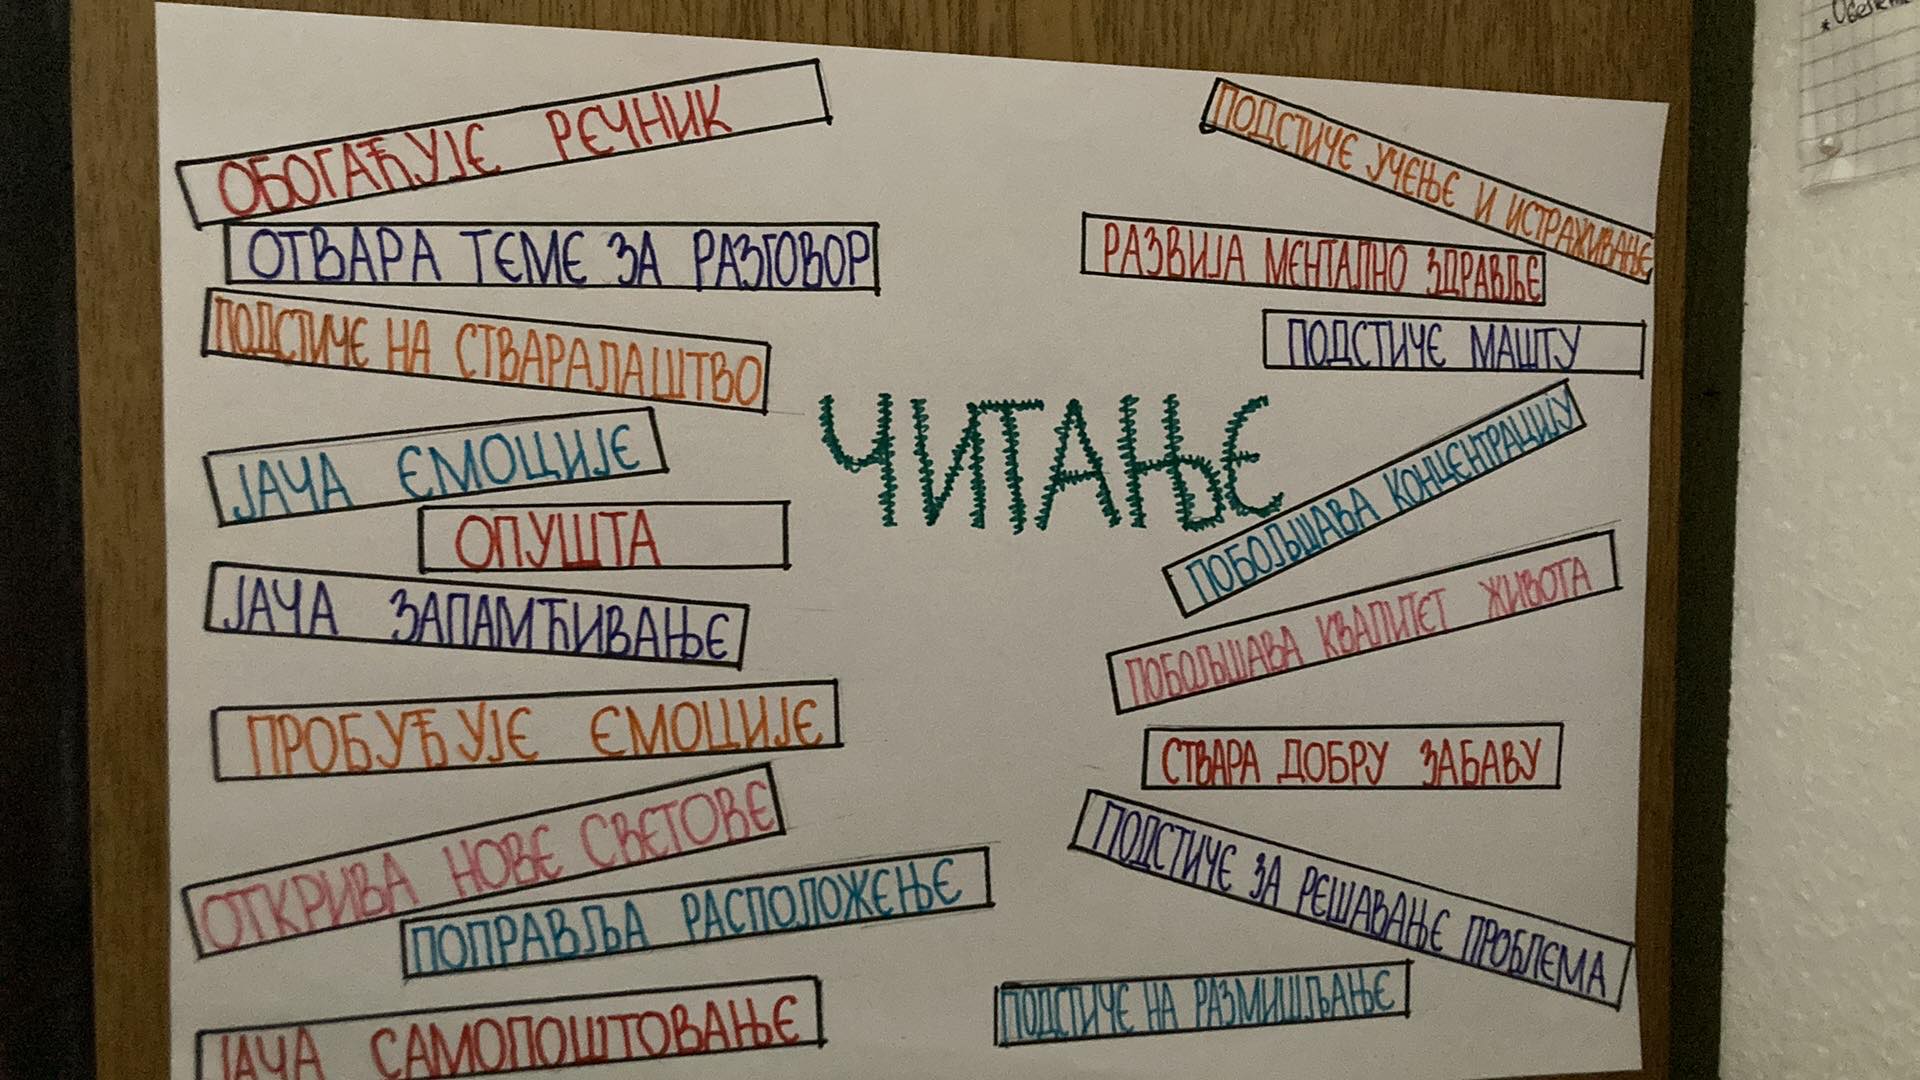 ОБОГАЋУЈЕ РЕЧНИК
ОТВАРА ТЕМЕ ЗА РАЗГОВОР
ПОДСТИЧЕ НА СТВАРАЛАШТВО
ЈАЧА ЕМОЦИЈЕ
ОПУШТА
ЈАЧА ЗАПАМЋИВАЊЕ
ПРОБУЂУЈЕ ЕМОЦИЈЕ
ОТКРИВА НОВЕ СВЕТОВЕ
ПОПРАВЉА РАСПОЛОЖЕЊЕ
ЈАЧА САМОПОШТОВАЊЕ
ЧИТАЊЕ
ПОДСТИЧЕ УЧЕЊЕ И ИСТРАЖИВАЊЕ
РАЗВИЈА МЕНТАЛНО ЗДРАВЉЕ
ПОДСТИЧЕ МАШТУ
ПОБОЉШАВА КОНЦЕНТРАЦИЈУ
ПОБОЉШАВА КВАЛИТЕТ ЖИВОТА
СТВАРА ДОБРУ ЗАБАВУ
ПОДСТИЧЕ ЗА РЕШАВАЊЕ ПРОБЛЕМА
ПОДСТИЧЕ НА РАЗМИШЉАЊЕ